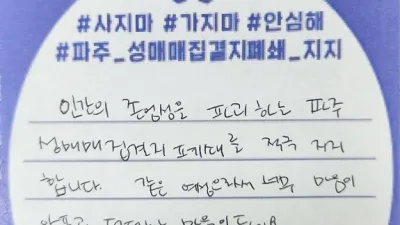 #사지마 #가지마 #안심해
#파주_성매매집결지폐쇄_지지
인간의 존엄성을 파괴하는 파주
성매매집결지 폐계대를 적극 지지
합니다. 같은 여성으로서 너무 마음이